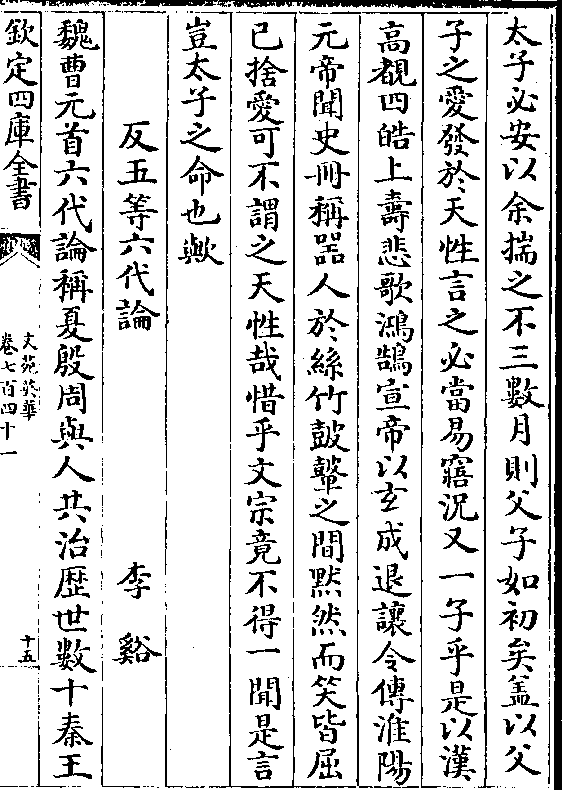 太子必安以余揣之不三數月則父子如初矣盖以父
子之愛發於天性言之必當易寤況又一子乎是以漢
高覩四皓上壽悲歌鴻鵠宣帝以玄成退讓令傅淮陽
元帝聞史丹稱器人於絲竹鼓鼙之間黙然而笑皆屈
已捨愛可不謂之天性哉惜乎文宗竟不得一聞是言
豈太子之命也歟
反五等六代論 李谿
魏曹元首六代論稱夏殷周與人共治歴世數十秦王
欽定四庫全書
文苑英華
卷七百四十一
十五